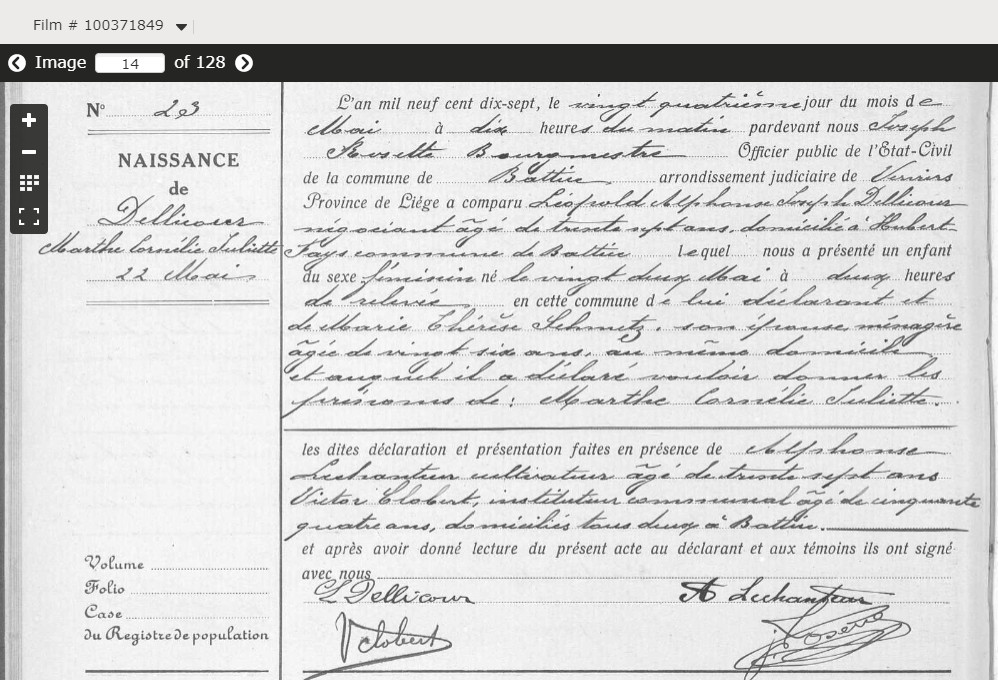 Film # 100371849
Image 14 of 128
N° 23
NAISSANCE
de
Dellicour
Marthe Cornélie Juliette
22 Mai
Volume
Folio
Case
du Registre de population
L'an mil neuf cent dix-sept, le vingt quatrième jour du mois de
Mai à dix heures du matin pardevant nous Joseph
Rosette Bourgmestre Officier public de l'Etat-Civil
de la commune de Battice arrondissement judiciaire de Verviers
Province de Liége a comparu Léopold Alphonse Joseph Dellicour
négociant âgé de trente sept ans, domicilié à Hubert-
Fays commune de Battice lequel nous a présenté un enfant
du sexe féminin né le vingt deux Mai à deux heures
de relevée en cette commune de lui déclarant et
de Marie Thérèse Schmetz, son épouse, ménagère
âgée de vingt six ans, au même domicile
et auquel il a déclaré vouloir donner les
prénoms de : Marthe Cornélie Juliette.
les dites déclaration et présentation faites en présence de Alphonse
Lechanteur cultivateur âgé de trente sept ans
Victor Clobert, instituteur communal âgé de cinquante
quatre ans, domiciliés tous deux à Battice.
et après avoir donné lecture du présent acte au déclarant et aux témoins ils ont signé
avec nous
L Dellicour A Lechanteur
V Clobert